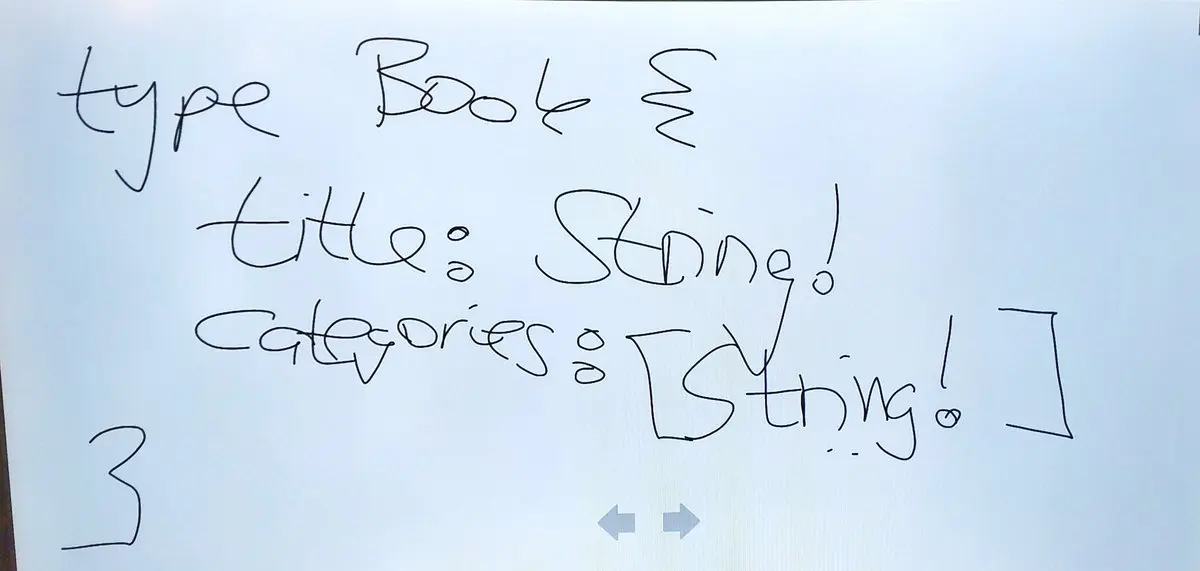 type Book {
title: String!
categories: [String!]
}